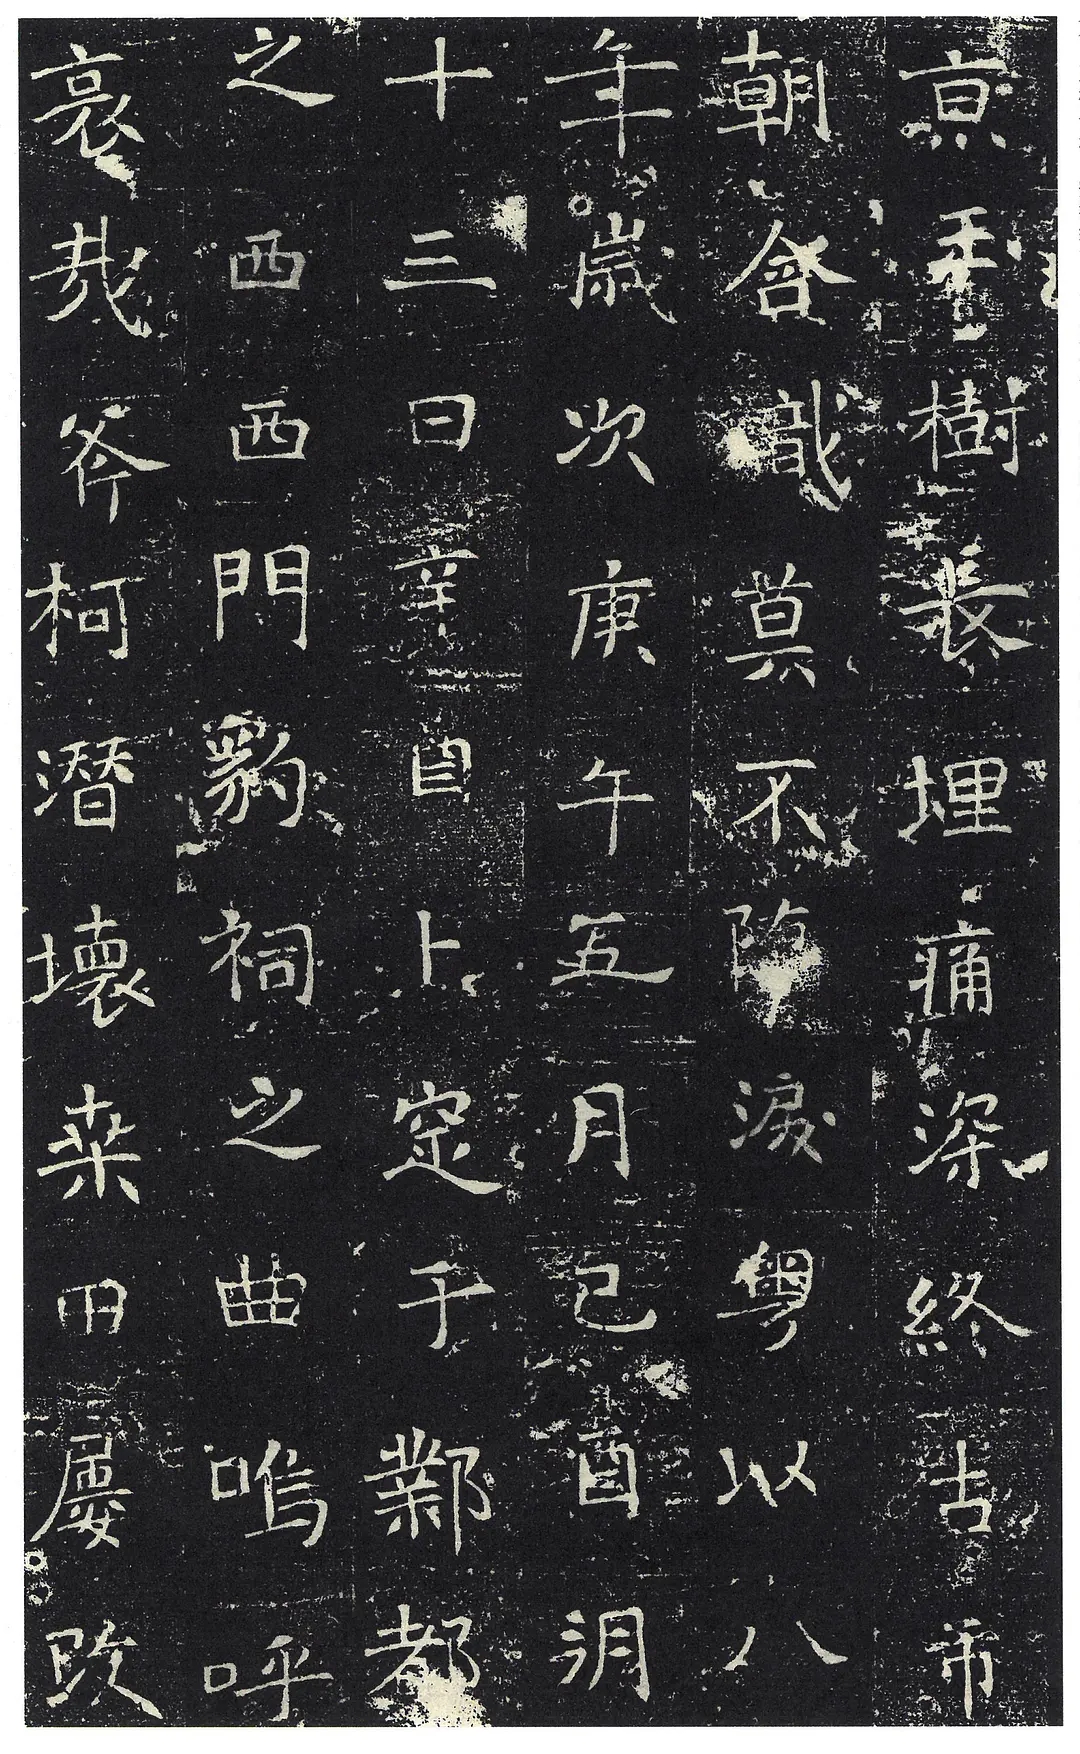 亰玉樹埋痛深終古市
朝會識莫不墮淚粤以八
年歲次庚午五月己酉朔
十三日辛酉卜定于鄴都
之西西門豹祠之曲嗚呼
哀哉斧柯潛壞桒田屢改